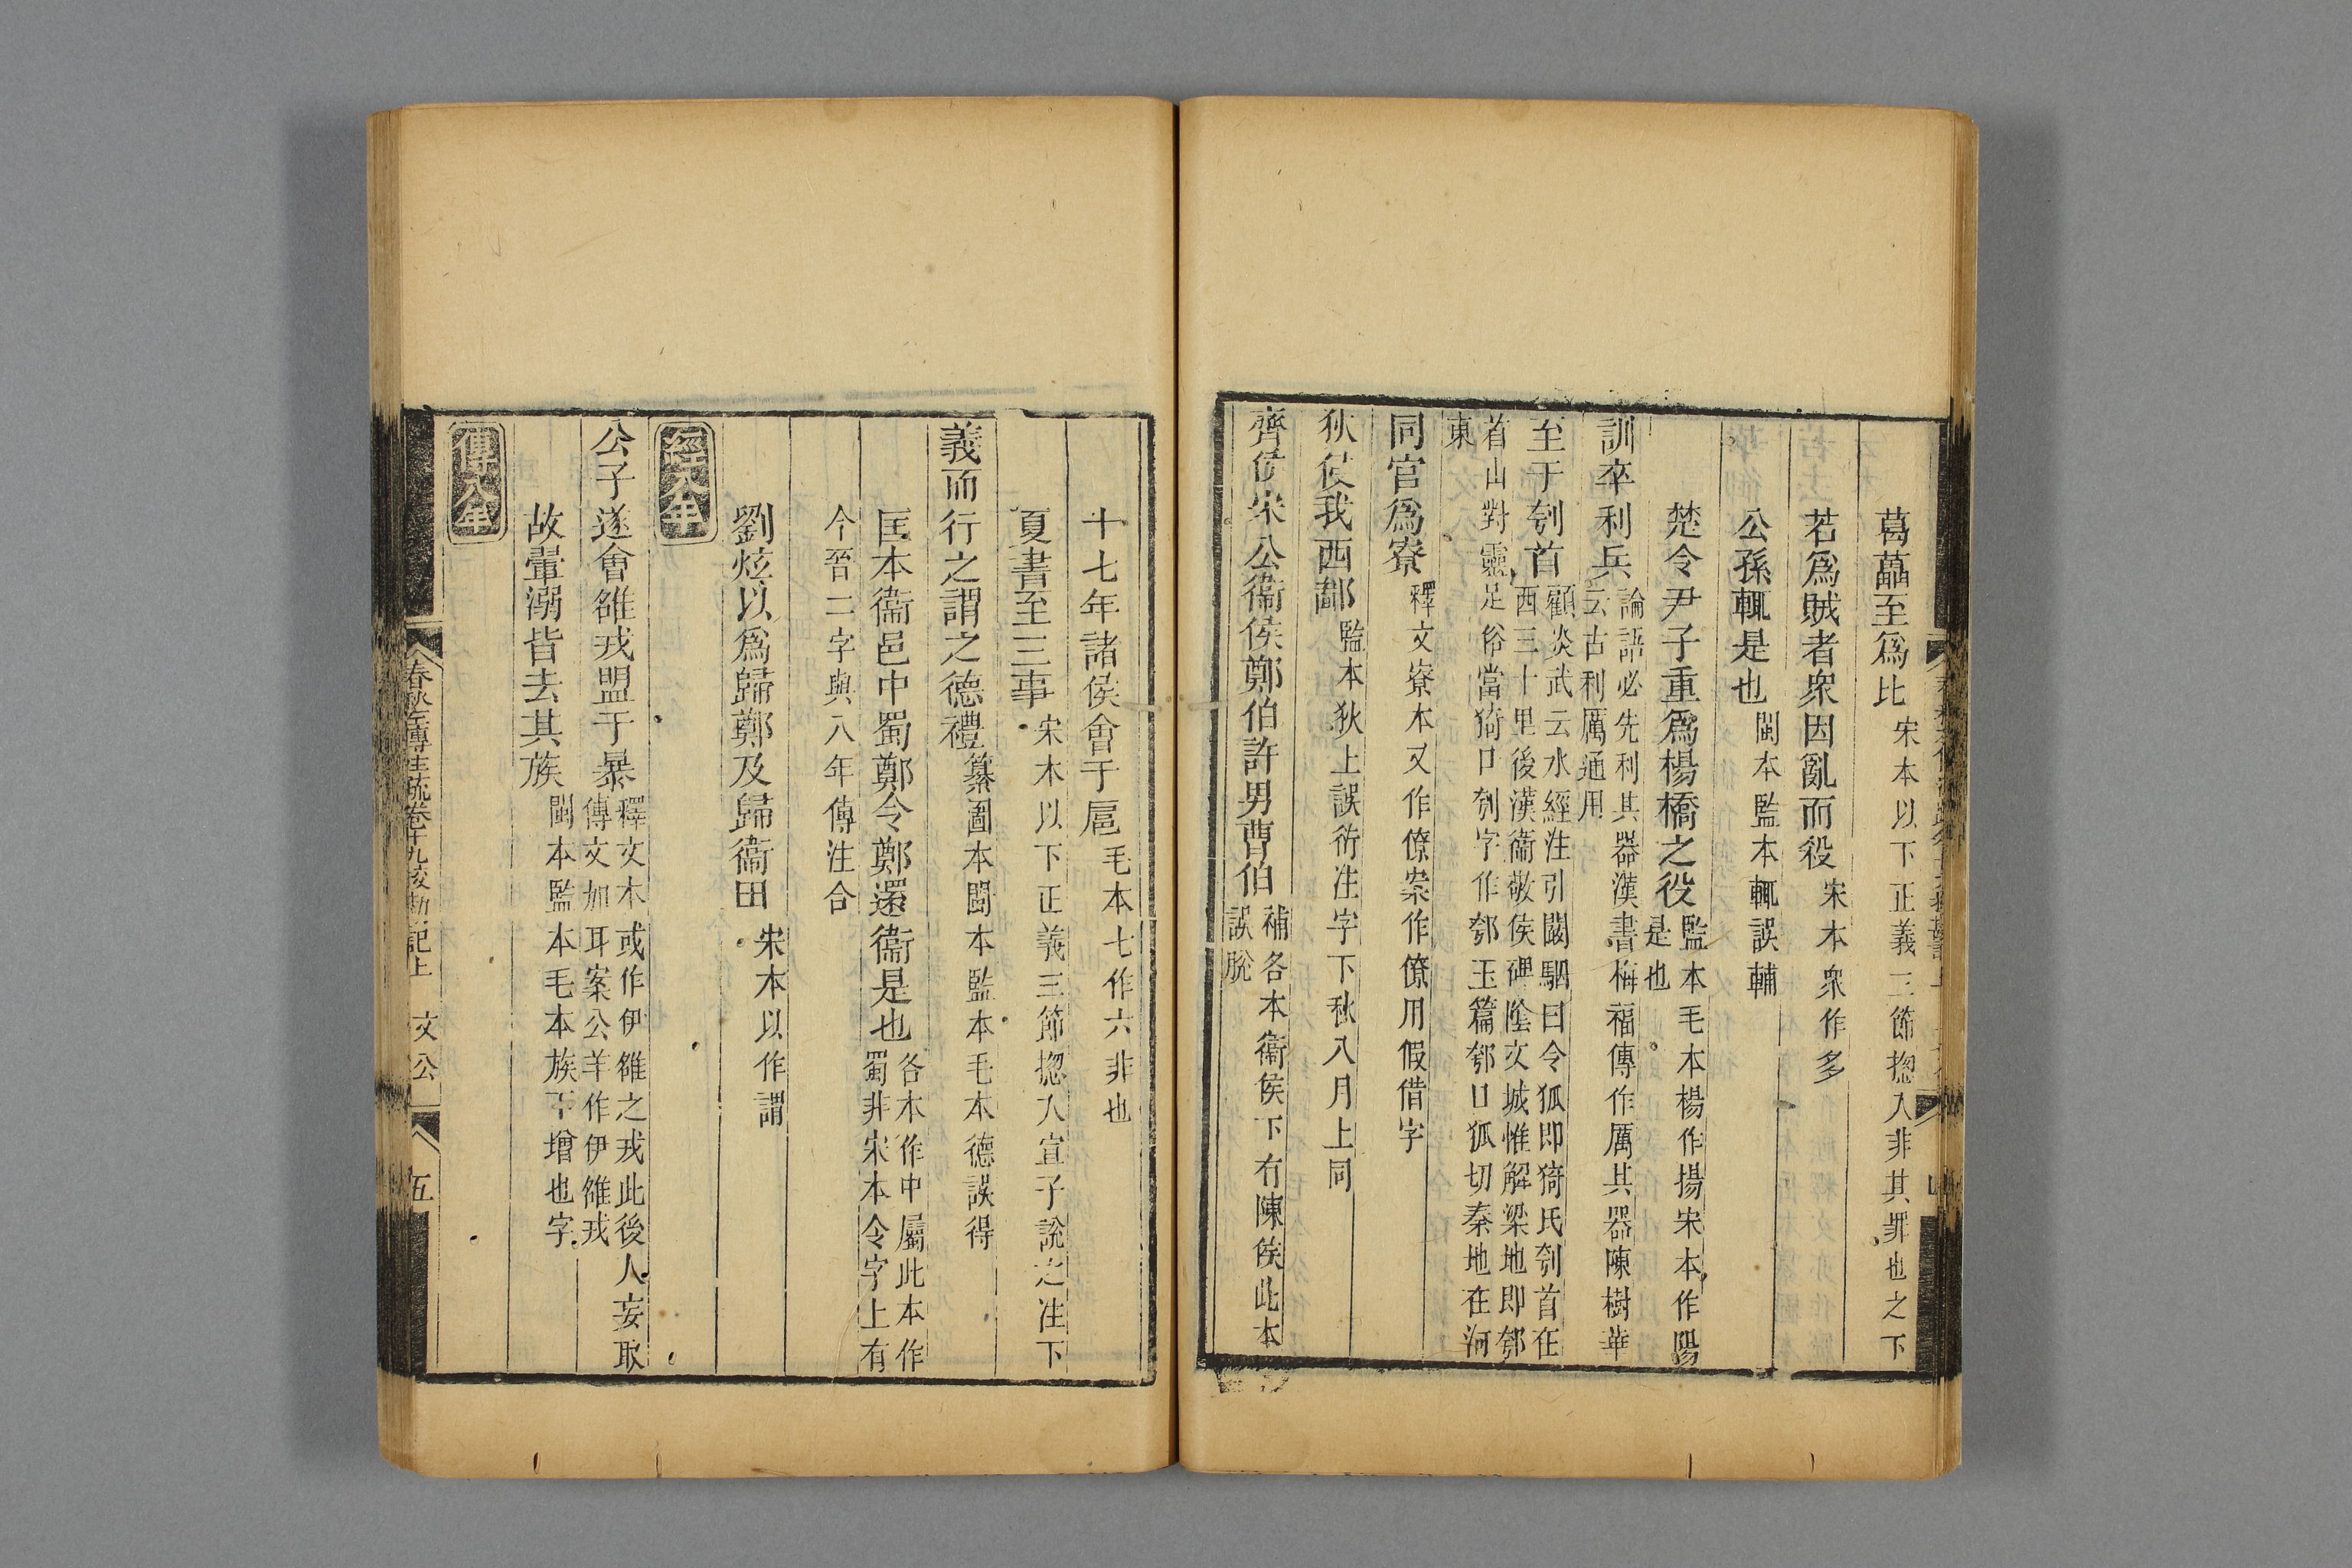 葛藟至爲比宋本以下正義三節揔入非其罪也之下
若爲賊者衆因亂而役宋本衆作多
公孫輒是也閩本監本輒誤輔
楚令尹子重爲楊橋之役監本毛本楊作揚宋本作陽
是也
訓卒利兵論語必先利其器漢書梅福傳作厲其器陳樹華
云古利厲通用
至于刳首顧炎武云水經注引闞駰曰令狐即猗氏刳首在
西三十里後漢衞敬侯碑陰文城惟解梁地即郀
首山對靈足俗當猗口刳字作郀玉篇郀口狐切秦地在河
東
同官爲寮釋文寮本又作僚案作僚用假借字
狄侵我西鄙監本狄上誤衍注字下秋八月上同
齊侯宋公衞侯鄭伯許男曹伯補各本衞侯下有陳侯此本
誤脫
十七年諸侯會于扈毛本七作六非也
夏書至三事宋本以下正義三節揔入宣子說之注下
義而行之謂之德禮纂圖本閩本監本毛本德誤得
匡本衞邑中蜀鄭令鄭還衞是也各本作中屬此本作
蜀非宋本令字上有
今晉二字與八年傳注合
劉炫以爲歸鄭及歸衞田宋本以作謂
經八年
公子遂會雒戎盟于暴釋文本或作伊雒之戎此後人妄取
傳文加耳案公羊作伊雒戎
故暈溺皆去其族閩本監本毛本族下增也字
傳八年
春秋左傳注疏卷十九校勘記上 文公 五